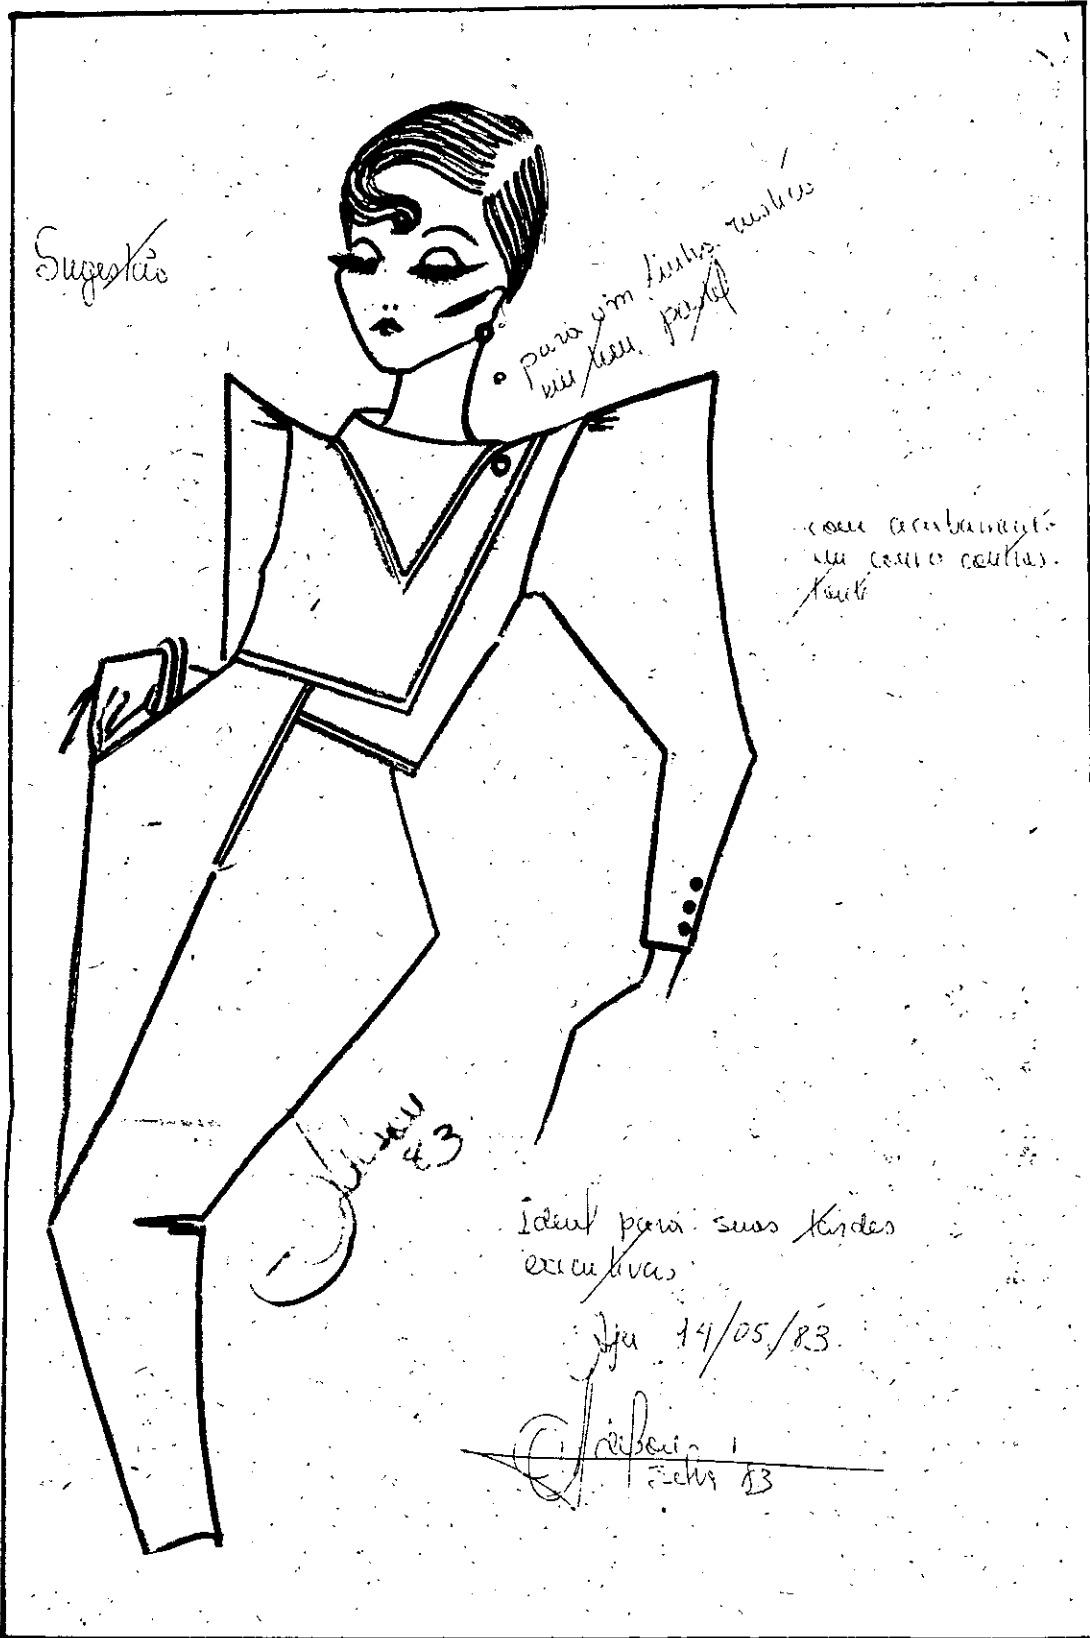 Sugestão
para um linho rústico
em tom pastel
com acabamento
em couro contras-
tante
83
Ideal para suas tardes
executivas
Aju 14/05/83.
83